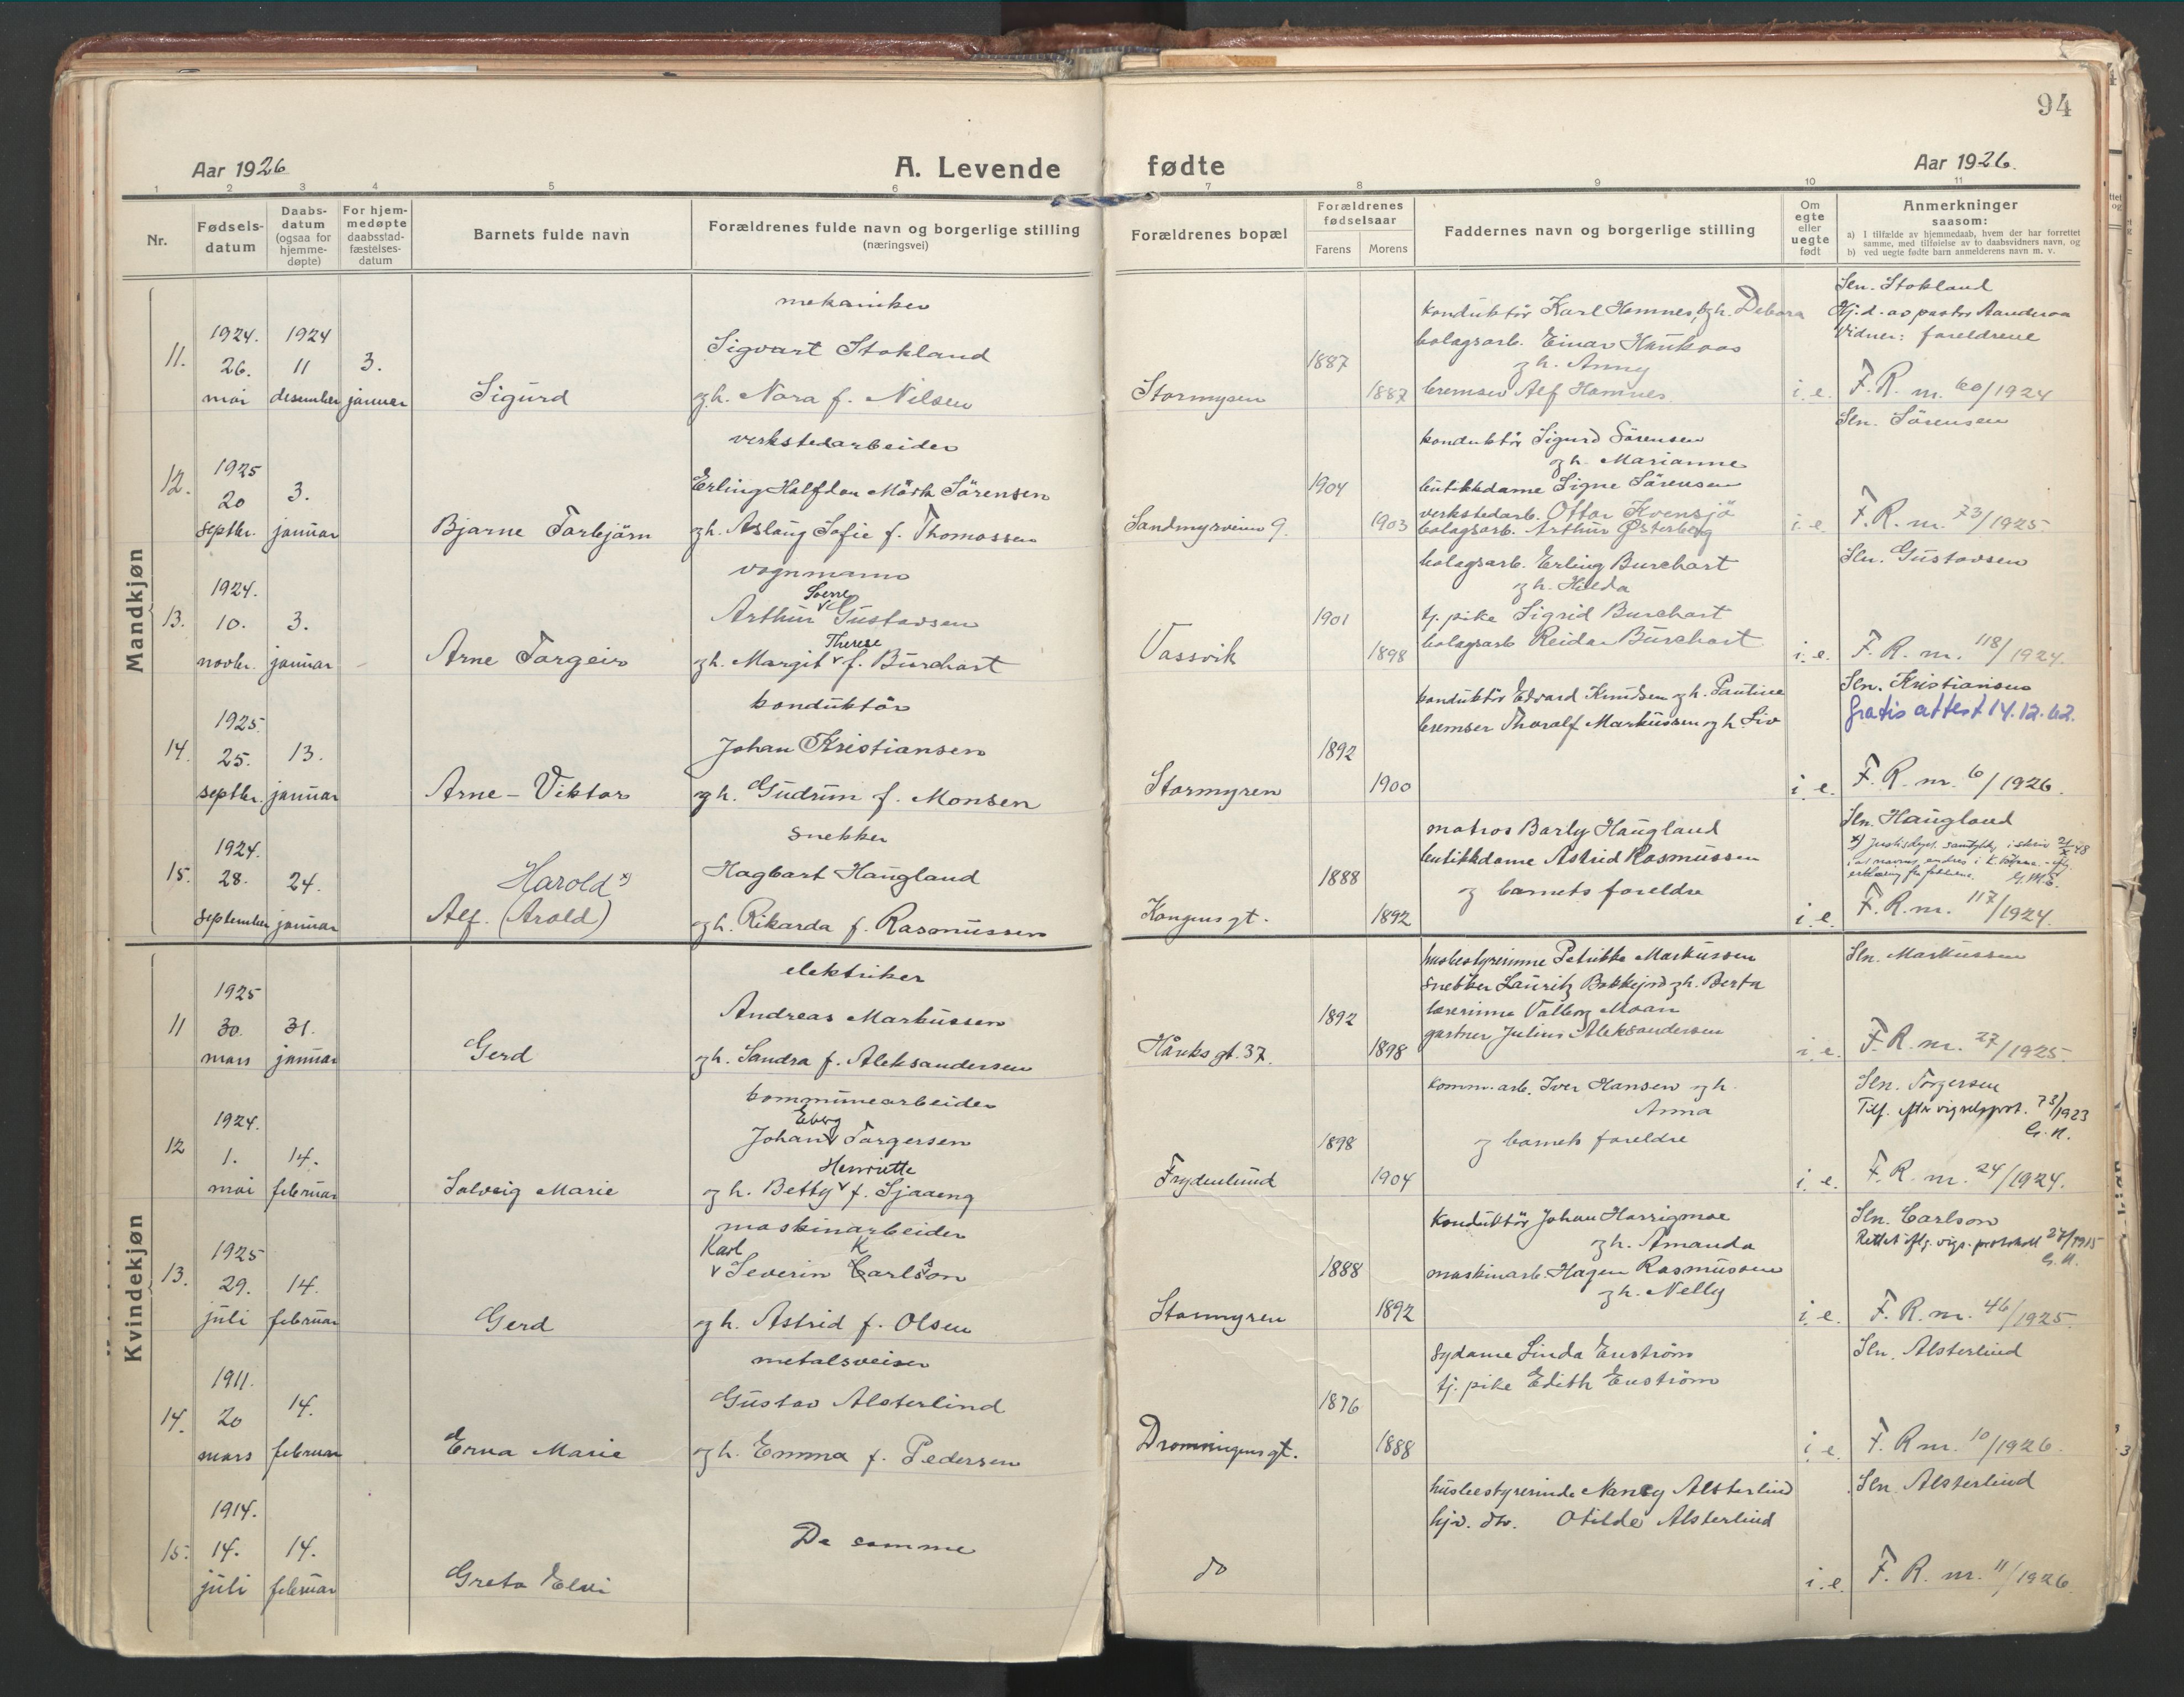 94
Aar 1926
A. Levende fødte
Aar 1926.
1 2 3 4 5 6 7 8 9 10 11
Nr.
Fødsels-
datum
Daabs-
datum
(ogsaa for
hjemme-
døpte)
For hjem-
medøpte
daabsstad-
fæstelses-
datum
Barnets fulde navn
Forældrenes fulde navn og borgerlige stilling
(næringsvei)
Forældrenes bopæl
Forældrenes
fødselsaar
Farens Morens
Faddernes navn og borgerlige stilling
Om
egte
eller
uegte
født
Anmerkninger
saasom:
a) I tilfælde av hjemmedaab, hvem der har forrettet
samme, med tilføielse av to daabsvidners navn, og
b) ved uegte fødte barn anmelderens navn m. v.
Mandkjøn
11.
1924.
26.
mai
1924
11
desember
3.
januar
Sigurd
mekaniker
Sigvart Stokland
og h. Nora f. Nilsen
Stormyren
1887
1887
konduktör Karl Hamnes, og h. Debora
bolagsarb. Einar Haukaas
og h. Anny
bremser Alf Hamnes
i. e.
Sln. Stokland
Hj. d. av pastor Aanderaa
Vidner: foreldrene
F. R. nr. 60/1924
12.
1925
20
septbr.
3.
januar
Bjarne Torbjörn
verkstedarbeider
Erling Halfdan Mörk Sörensen
og h. Aslaug Sofie f. Thomassen
Sandmyrveien 9.
1904
1903
konduktör Sigurd Sörensen
og h. Marianne
butikkdame Signe Sörensen
verkstedarb. Ottar Kvensjö
bolagsarb. Arthur Østerberg
i. e.
Sln. Sörensen
F. R. nr. 73/1925.
13.
1924.
10.
novbr.
3.
januar
Arne Torgeir
vognmann
Sverre
Arthur v Gustavsen
Therese
og h. Margit v f. Burchart
Vassvik
1901
1898
bolagsarb. Erling Burchart
og h. Hilda
tj. pike Sigrid Burchart
bolagsarb Reidar Burchart
i. e.
Sln. Gustavsen
F. R. nr. 118/1924.
14.
1925.
25.
septbr.
13.
januar
Arne - Viktor
konduktör
Johan Kristiansen
og h. Gudrun f. Monsen
Stormyren
1892
1900
konduktör Edvard Knudsen og h. Pauline
bremser Thoralf Markussen og h. Liv
i. e.
Sln. Kristiansen
Gratis attest 14.12.62.
F. R. nr. 6/1926.
15.
1924.
28.
september
24.
januar
Harold x)
Alf. (Arold)
snekker
Hagbart Haugland
og h. Rikarda f. Rasmussen
Kongens gt.
1888
1892
matros Barly Haugland
butikkdame Astrid Rasmussen
og barnets foreldre
i. e.
Sln. Haugland
F. R. nr. 117/1924.
Kvindekjøn
11
1925
30.
mars
31.
januar
Gerd
elektriker
Andreas Markussen
og h. Sandra f. Aleksandersen
Håreks gt. 37.
1892
1898
husbestyrerinne Petrikke Markussen
snekker Lauritz Bakkejord og h. Berta
lærerinne Valborg Moan
gartner Julius Aleksandersen
i. e.
Sln. Markussen
F. R. nr. 27/1925.
12
1924.
1.
mai
14.
februar
Solveig Marie
kommunearbeider
Eberg
Johan v Torgersen
Henriette
og h. Betty v f. Sjaaeng
Frydenlund
1898
1904
komm. arb. Iver Hansen og h.
Anna
og barnets foreldre
i. e.
Sln. Torgersen
Tilf. efter vigselsprot. 73/1923
G. N.
F. R. nr. 24/1924.
13.
1925
29.
juli
14.
februar
Gerd
maskinarbeider
Karl K
v Severin Carlson
og h. Astrid f. Olsen
Stormyren
1888
1892
konduktör Johan Harrigmoe
og h. Amanda
maskinarb. Hagen Rasmussen
og h. Nelly
i. e.
Sln. Carlson
Rettet iflg. vigs. protokoll 27/1915
G. N.
F. R. nr. 46/1925.
14.
1911.
20
mars
14.
februar
Erna Marie
metalsveiser
Gustav Alsterlind
og h. Emma f. Pedersen
Dronningens gt.
1876
1888
sydame Linda Enström
tj. pike Edith Enström
i. e.
Sln. Alsterlind
F. R nr. 10/1926.
15.
1914.
14.
juli
14.
februar
Greta Elvi
De samme
do
husbestyrerinde Nancy Alsterlind
hjv. dtr. Otilde Alsterlind
i. e.
Sln. Alsterlind
F. R. nr. 11/1926.